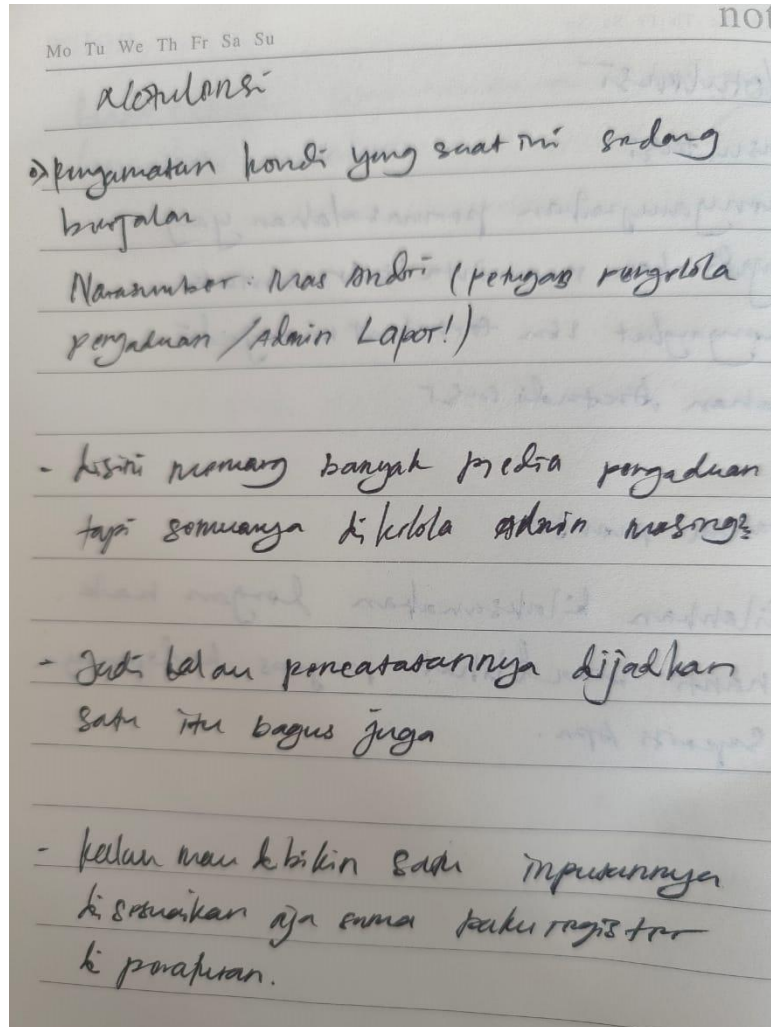 not
Mo Tu We Th Fr Sa Su
Notulensi
Pengamatan kondi yang saat ini sedang
berjalan
Narasumber: Mas Andri (petugas pengelola
pengaduan / Admin Lapor!)
- disini memang banyak media pengaduan
tapi semuanya di kelola Admin masing2
- Jadi kalau pencatatannya dijadkan
satu itu bagus juga
- kalau mau dibikin satu inputannya
di sesuaikan aja sama buku register
di peraturan.